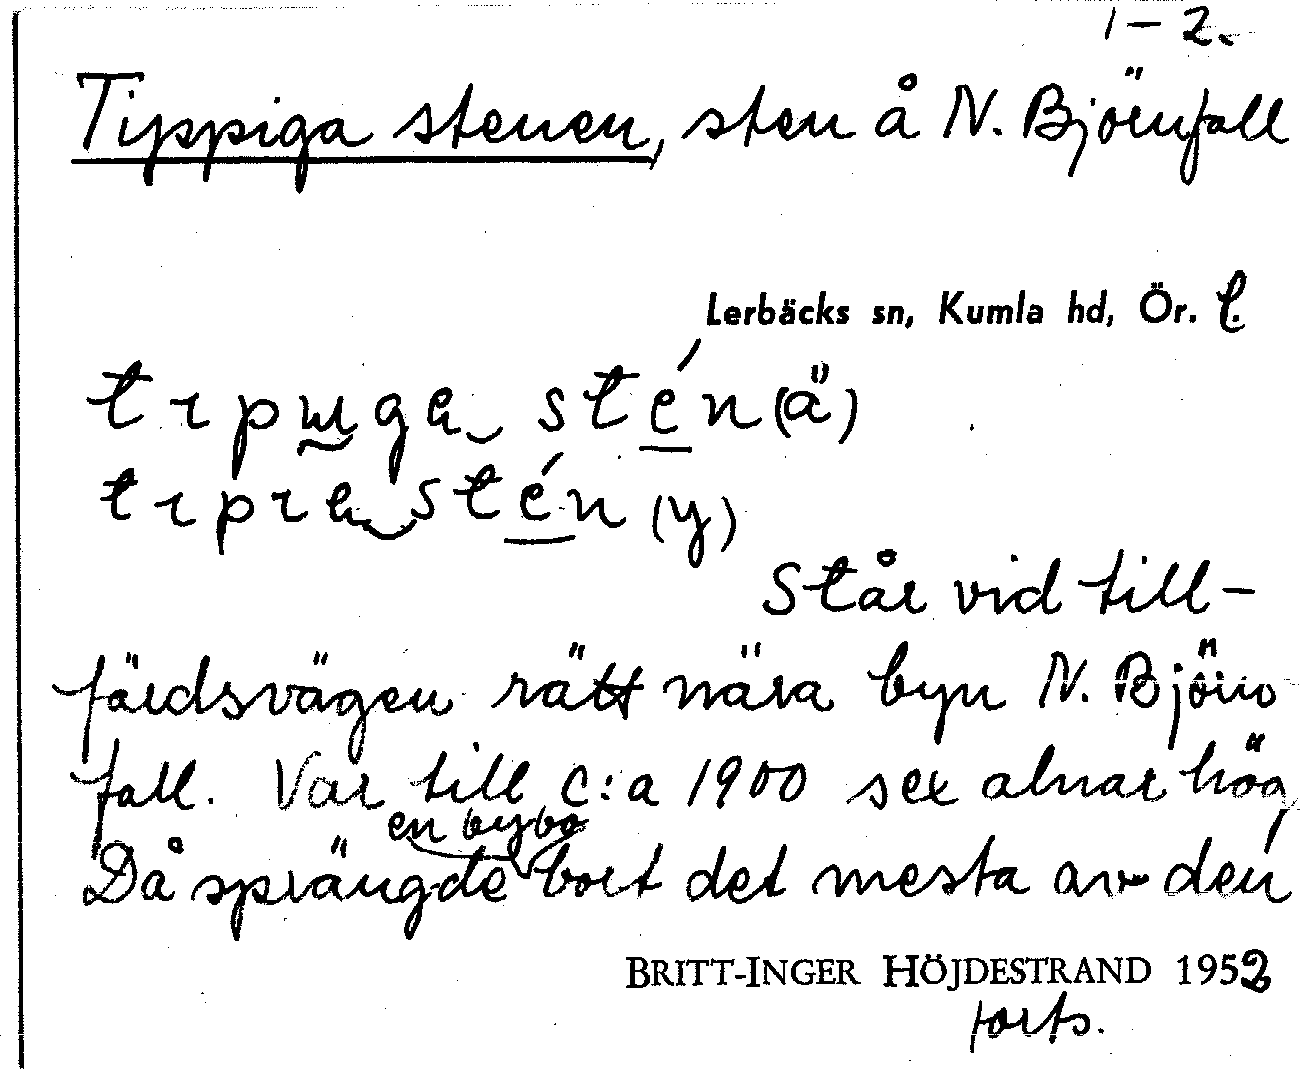 1 – 2.
Tippiga stenen, sten å N. Björnfall
Lerbäcks sn, Kumla hd, Ör. l.
stén (ä)
stén (y)
Står vid till-
färdsvägen rätt nära byn N. Björn
fall. Var till c:a 1900 sex alnar hög
en bybo
Då sprängde bort det mesta av den
BRITT-INGER HÖJDESTRAND 1952
forts.